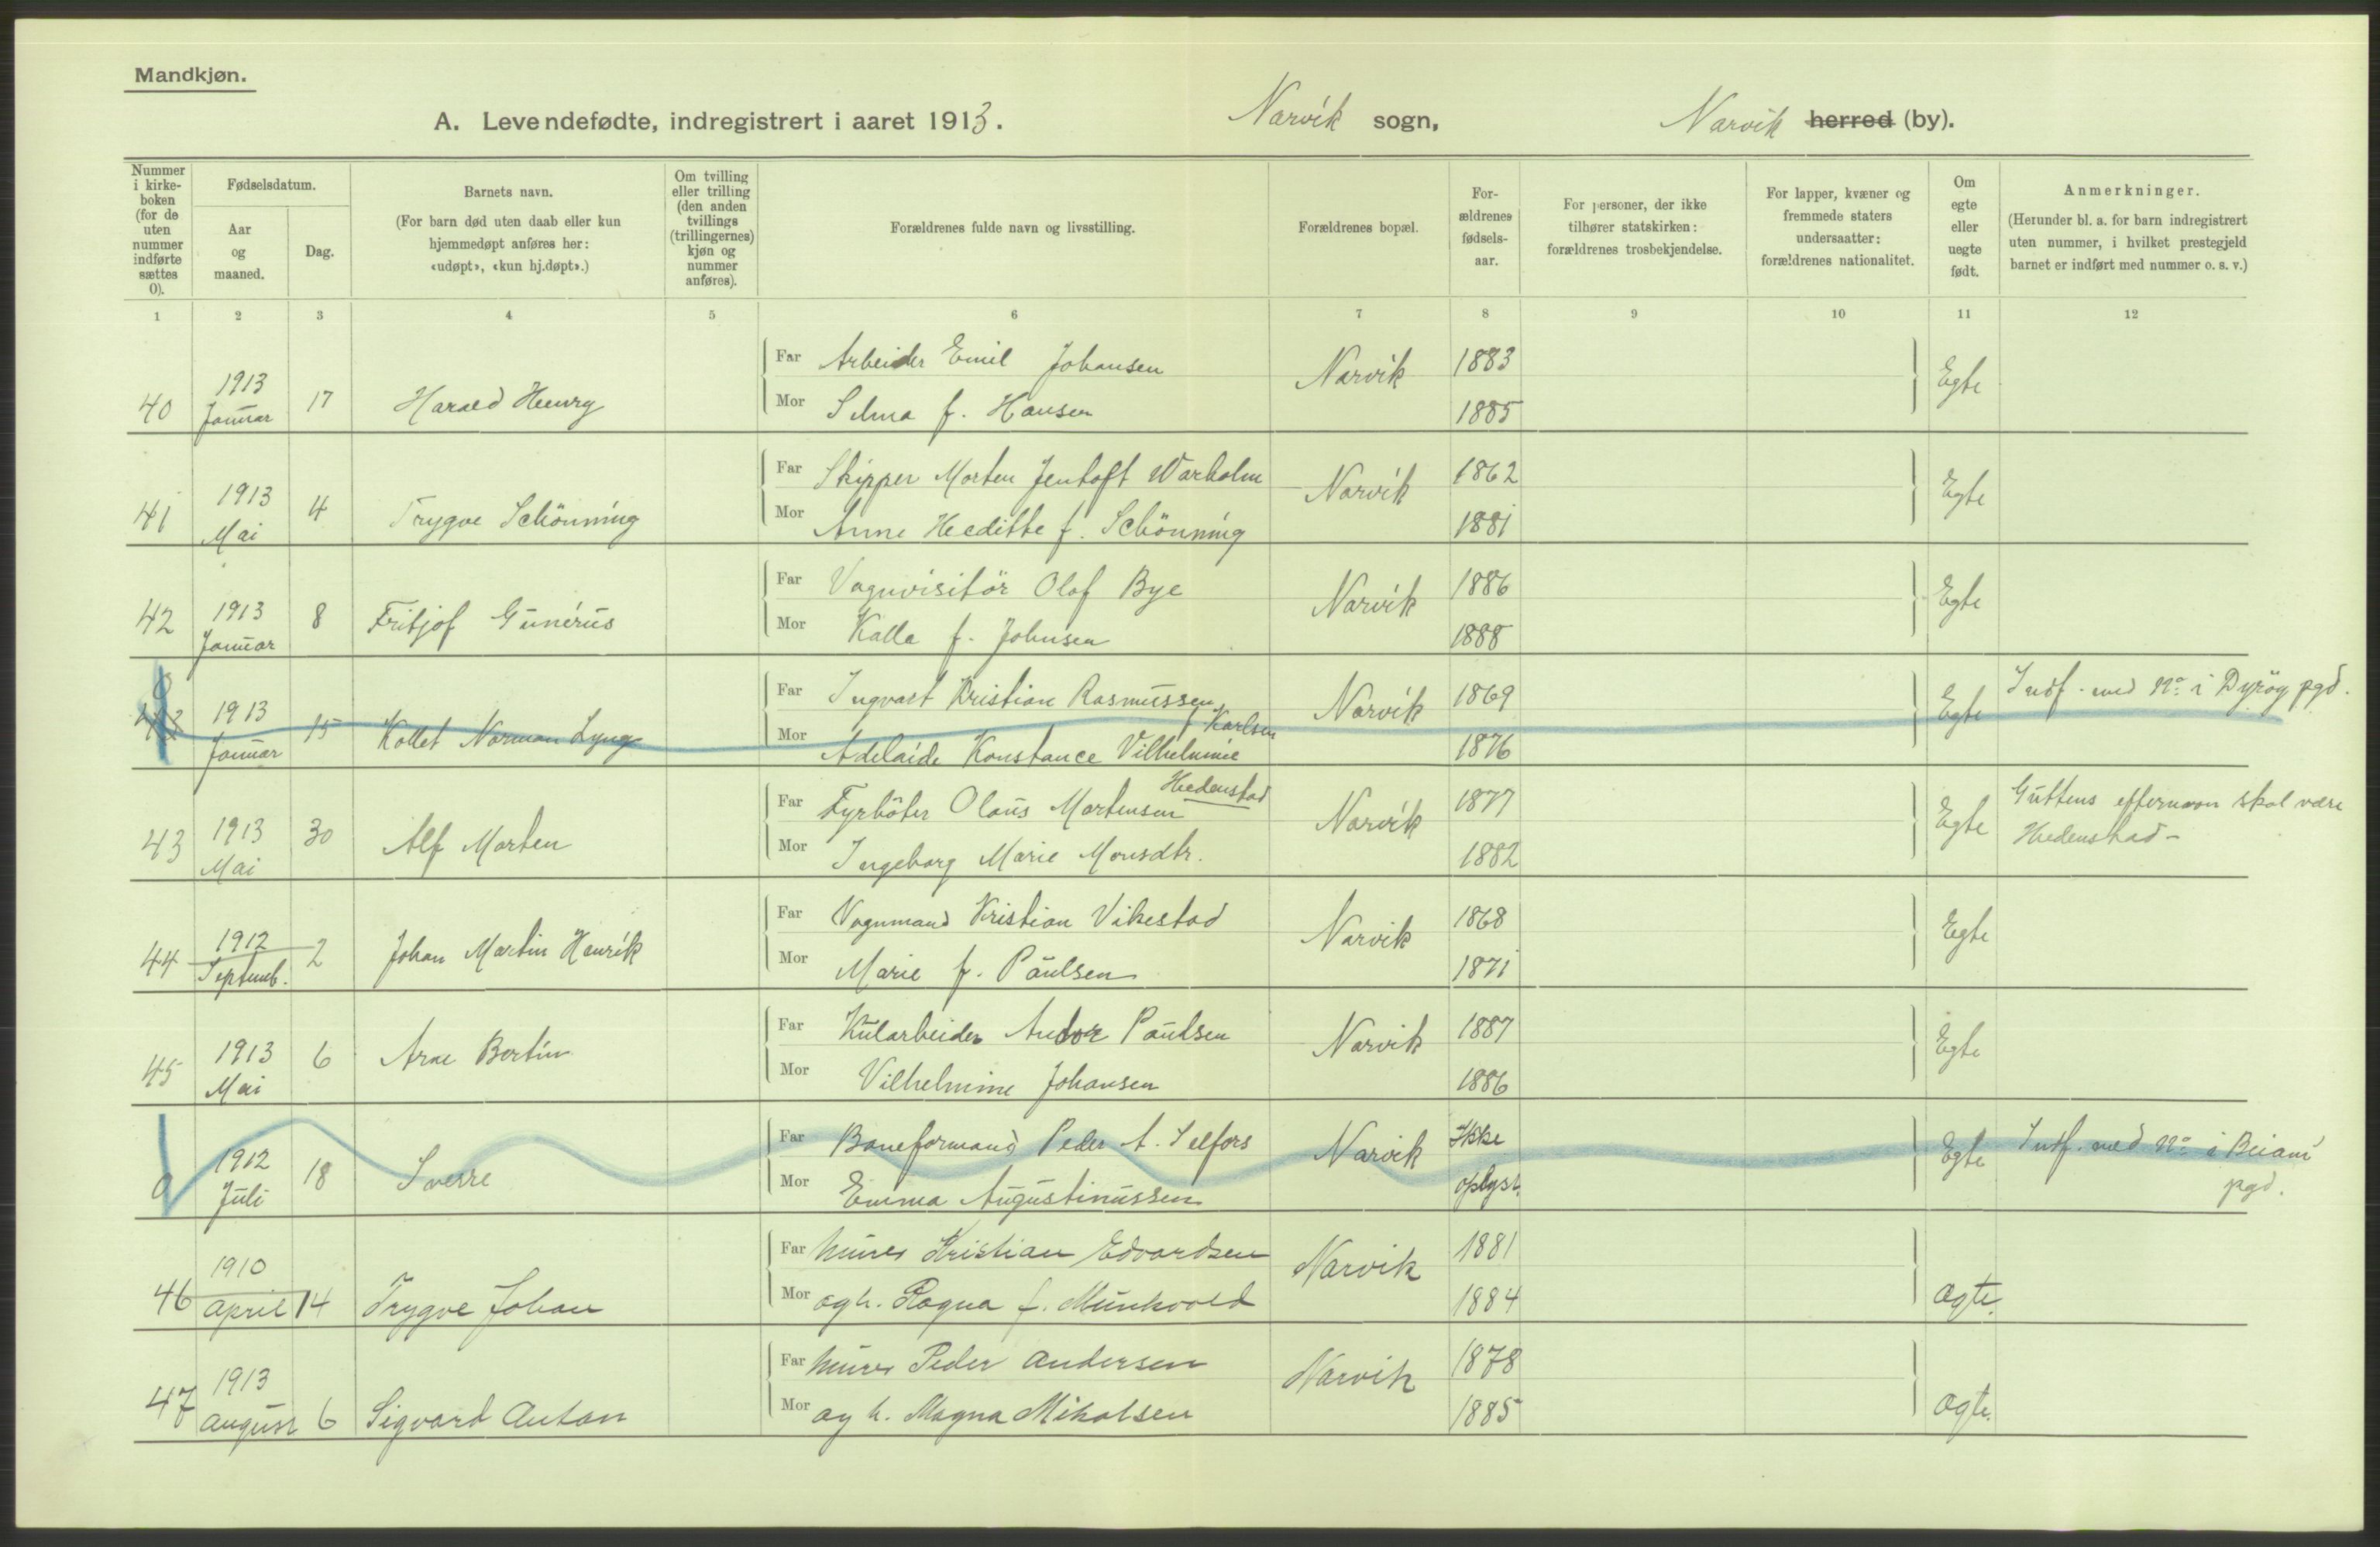 Mandkjøn.
A. Levendefødte, indregistrert i aaret 1913. Narvik sogn, Narvik herred (by).
Nummer i kirke-boken (for de uten nummer indførte sættes 0).
Fødselsdatum.
Aar og maaned.
Dag.
Barnets navn.
(For barn død uten daab eller kun hjemmedøpt anføres her: «udøpt», «kun hj.døpt».)
Om tvilling eller trilling (den anden tvillings (trillingernes) kjøn og nummer anføres).
Forældrenes fulde navn og livsstilling.
Forældrenes bopæl.
For-ældrenes fødsels-aar.
For personer, der ikke tilhører statskirken: forældrenes trosbekjendelse.
For lapper, kvæner og fremmede staters undersaatter: forældrenes nationalitet.
Om egte eller uegte født.
Anmerkninger.
(Herunder bl. a. for barn indregistrert uten nummer, i hvilket prestegjeld barnet er indført med nummer o. s. v.)
1 2 3 4 5 6 7 8 9 10 11 12
Far Arbeider Emil Johansen 1883
40 1913 Januar 17 Harald Henry Narvik Egte
Mor Selma f. Hansen 1885
Far Skipper Morten Jentoft Warholm 1862
41 1913 Mai 4 Trygve Schönning Narvik Egte
Mor Anne Heeditte f. Schönning 1881
Far Vognvisitör Olaf Bye 1886
42 1913 Januar 8 Fritjof Gunerus Narvik Egte
Mor Kalla f. Johnsen 1888
Far Ingvart Kristian Rasmussen 1869
0 43 1913 Januar 15 Kollet Norman Lyng Narvik Egte Indf. med No. i Dyröy pgd.
Mor Adelaide Konstance Vilhelmine f Karlsen 1876
Far Fyrböter Olaus Martensen Hedenstad 1877
43 1913 Mai 30 Alf Morten Narvik Egte Guttens efternavn skal være Hedenstad -
Mor Ingeborg Marie Monsdtr. 1882
Far Vognmand Kristian Vikestad 1868
44 1912 Septemb. 2 Johan Martin Henrik Narvik Egte
Mor Marie f. Paulsen 1871
Far Kularbeider Andor Paulsen 1887
45 1913 Mai 6 Arne Bertin Narvik Egte
Mor Vilhelmine Johansen 1886
Far Baneformand Peder A. Selfors Ikke
0 1912 Juli 18 Sverre Narvik Egte Indf. med No. i Beiarn pgd.
Mor Emma Augustinussen oplyst.
Far Murer Kristian Edvardsen 1881
46 1910 April 14 Trygve Johan Narvik Ægte.
Mor og h. Ragna f. Munkvold 1884
Far Murer Peder Andersen 1878
47 1913 August 6 Sigvard Anton Narvik Ægte.
Mor og h. Magna Mikalsen 1885